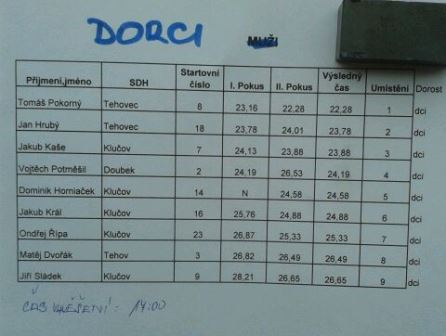 DORCI MUŽI
Příjmení,jméno SDH Startovní číslo I. Pokus II. Pokus Výsledný čas Umístění Dorost
Tomáš Pokorný Tehovec 8 23,16 22,28 22,28 1 dci
Jan Hrubý Tehovec 18 23,78 24,01 23,78 2 dci
Jakub Kaše Klučov 7 24,13 23,88 23,88 3 dci
Vojtěch Potměšil Doubek 2 24,19 26,53 24,19 4 dci
Dominik Horniaček Klučov 14 N 24,58 24,58 5 dci
Jakub Král Klučov 16 25,76 24,88 24,88 6 dci
Ondřej Řípa Klučov 23 26,87 25,33 25,33 7 dci
Matěj Dvořák Tehov 3 26,82 26,49 26,49 8 dci
Jiří Sládek Klučov 9 28,21 26,65 26,65 9 dci
ČAS : 14:00